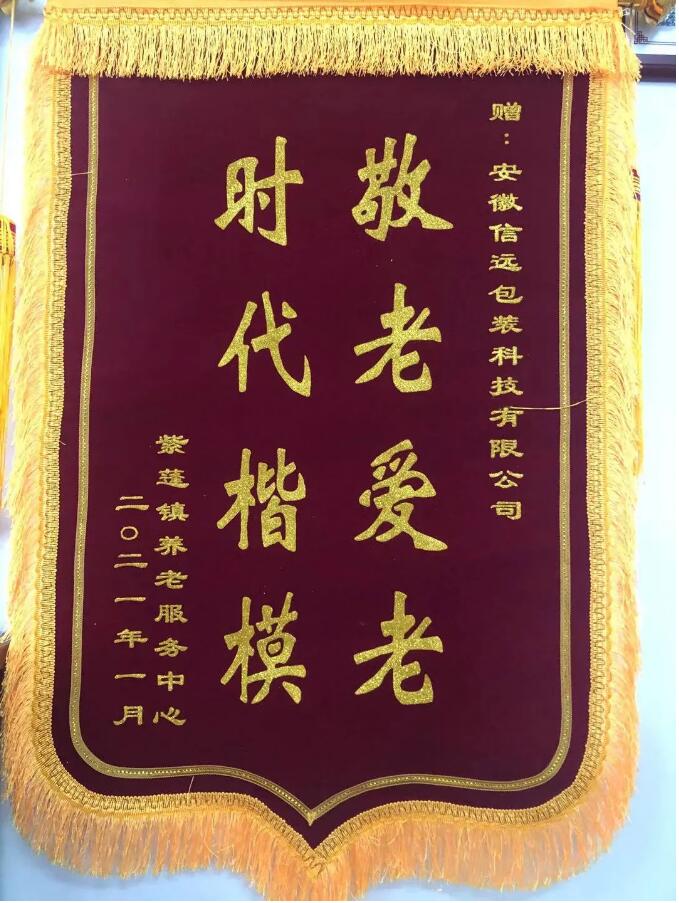 赠：安徽信远包装科技有限公司
敬老爱老
时代楷模
紫蓬镇养老服务中心
二〇二一年一月